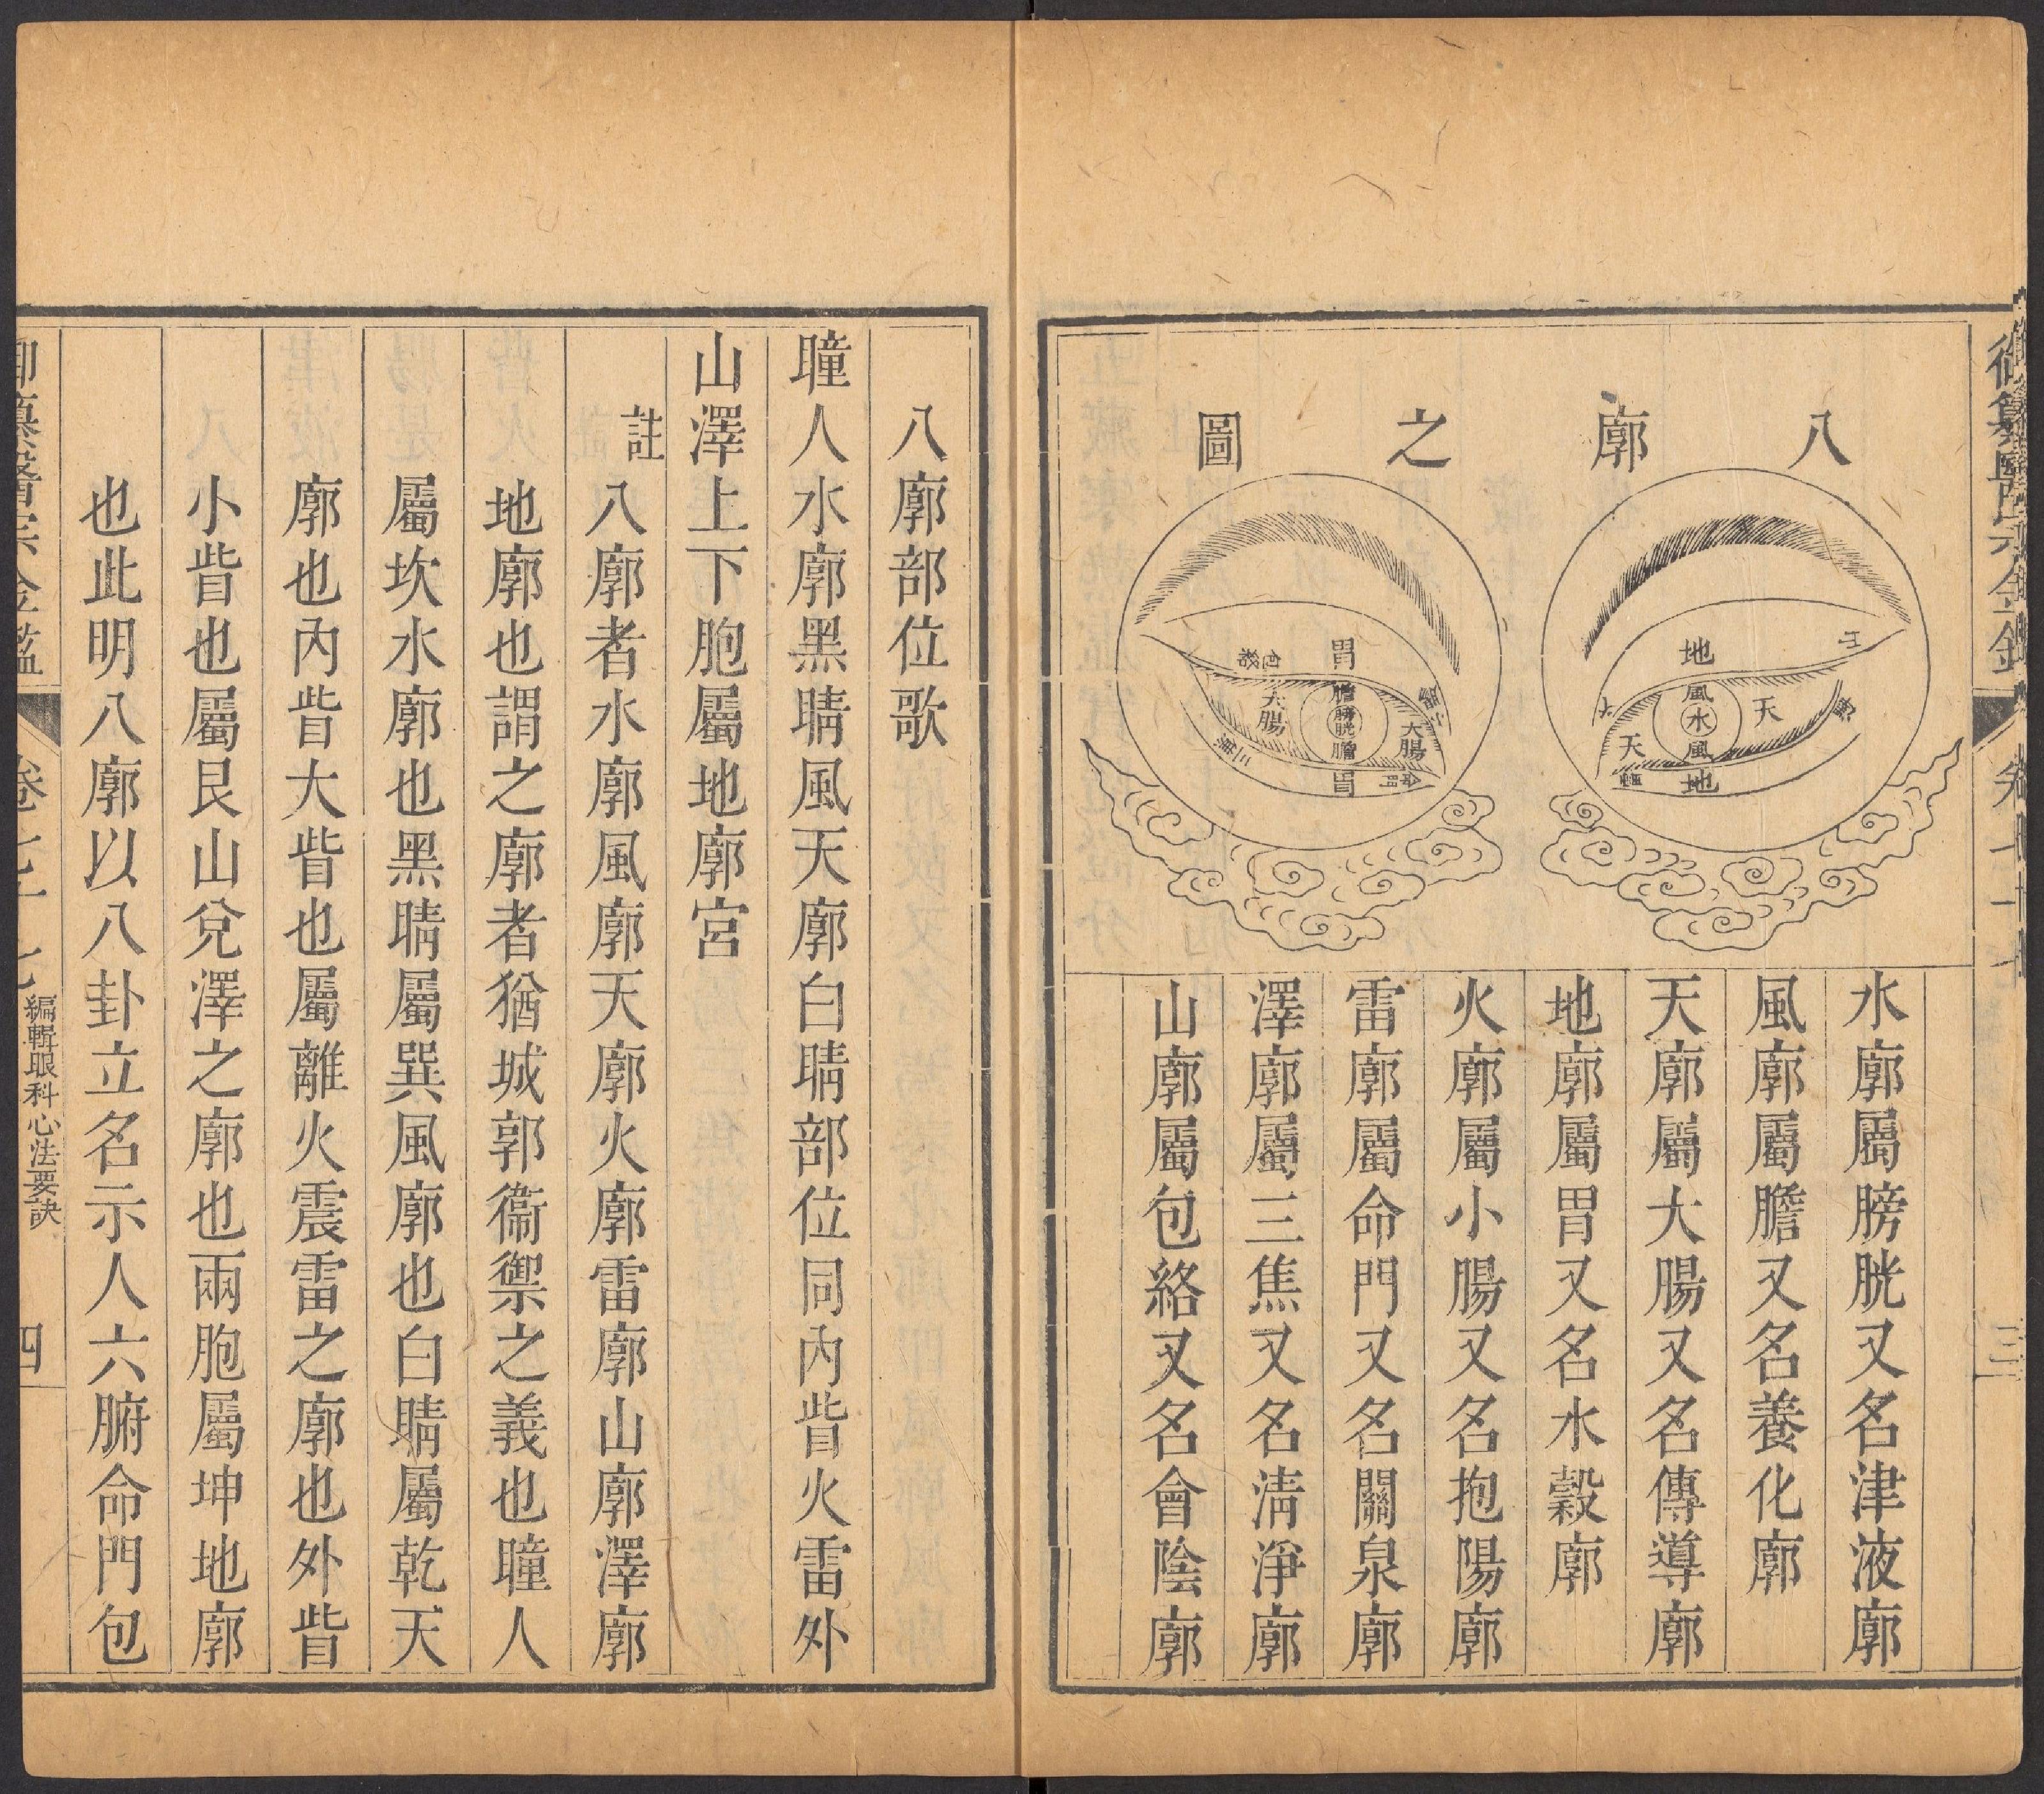 八廓之圖
地
天
風
水
風
天
地
胃
包絡
大腸
膽
膀胱
膽
大腸
三焦
胃
水廓屬膀胱又名津液廓
風廓屬膽又名養化廓
天廓屬大腸又名傳導廓
地廓屬胃又名水穀廓
火廓屬小腸又名抱陽廓
雷廓屬命門又名關泉廓
澤廓屬三焦又名淸淨廓
山廓屬包絡又名會陰廓
八廓部位歌
瞳人水廓黑睛風天廓白睛部位同內眥火雷外
山澤上下胞屬地廓宮
註
八廓者水廓風廓天廓火廓雷廓山廓澤廓
地廓也謂之廓者猶城郭衞禦之義也瞳人
屬坎水廓也黑睛屬巽風廓也白睛屬乾天
廓也內眥大眥也屬離火震雷之廓也外眥
小眥也屬艮山兌澤之廓也兩胞屬坤地廓
也此明八廓以八卦立名示人六腑命門包
編輯眼科心法要訣
四